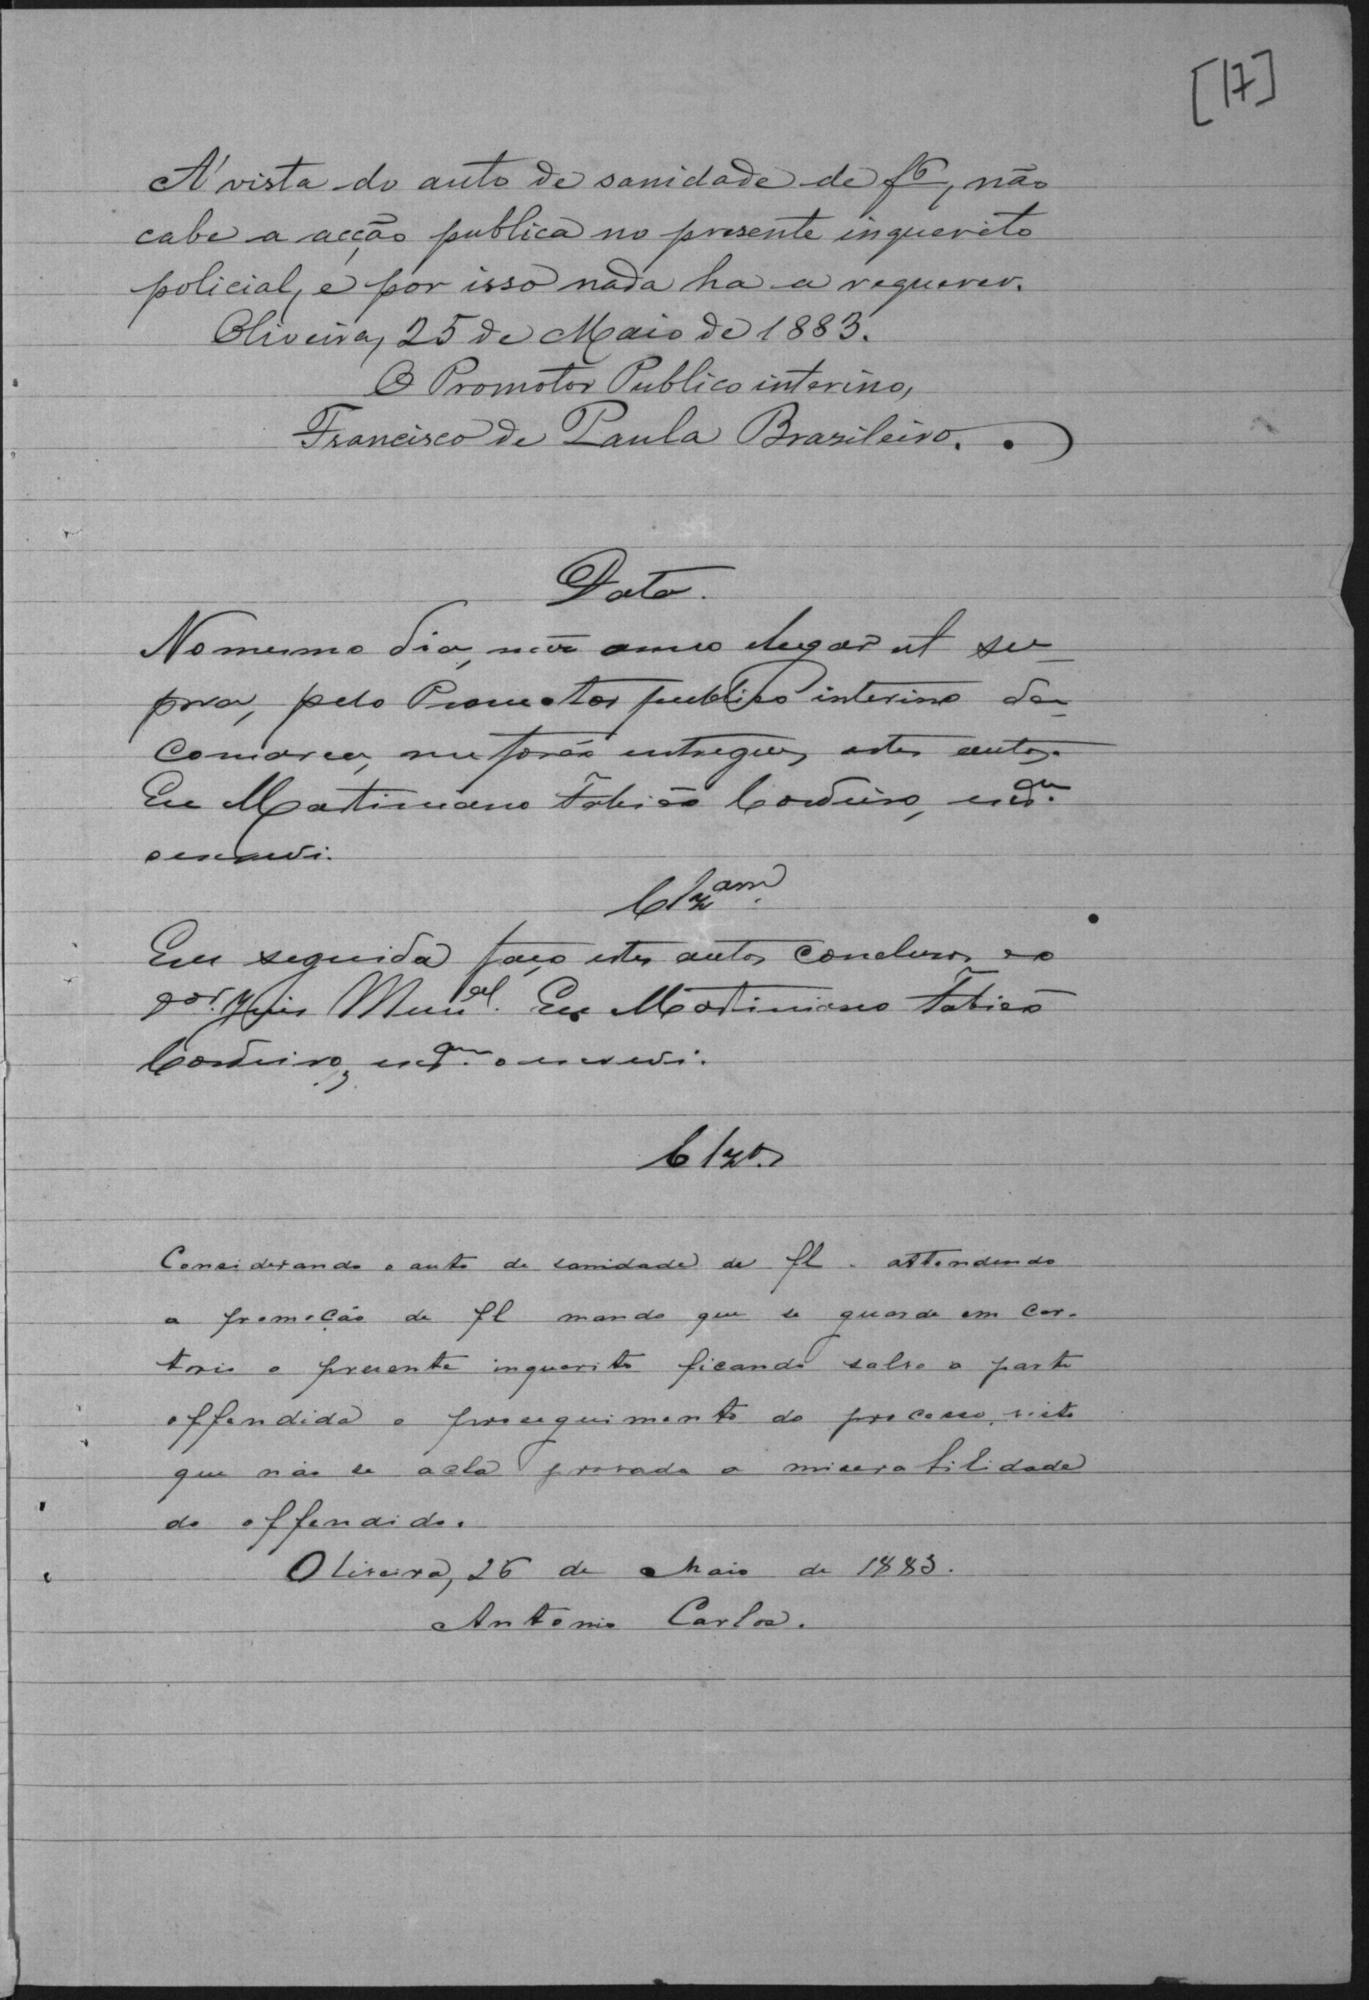 [17]
Á vista do auto de sanidade de f6, não
cabe a acção publica no presente inquerito
policial, e por isso nada ha a requerer.
Oliveira, 25 de Maio de 1883.
O Promotor Publico interino,
Francisco de Paula Brazileiro.
Data.
No mesmo dia, mez anno e lugar ut su_
pra, pelo Promotor publico interino da_
comarca, me forão entregues estes autos.
Eu Martiniano Fabião Cordeiro, escr.am
o escrevi.
Clz.am
Em seguida faço estes autos conclusos ao
Dor. Juis Mun.al. Eu Martiniano Fabião
Cordeiro, escr.am o escrevi.
Clzos.
Considerando o auto de sanidade de fl . attendendo
a promoção de fl mando que se guarde em car-
torio o presente inquerito ficando salvo a parte
offendida o proseguimento do processo, visto
que não se acha provada a miserabilidade
do offendido.
Oliveira, 26 de Maio de 1883.
Antonio Carlos.